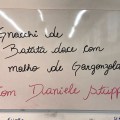 Gnocchi de
Batata doce com
molho de Gorgonzola
Com Daniele